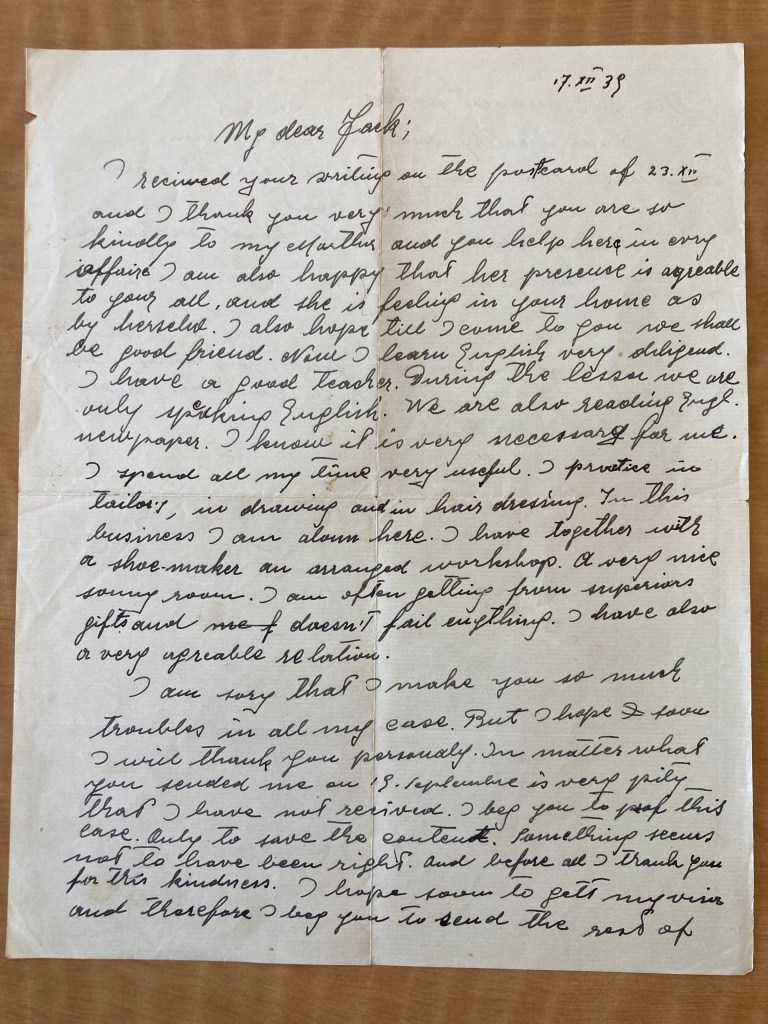 17.XII 39
My dear Jack;
I recieved your writing on the postcard of 23.XII
and I thank you very much that you are so
kindly to my Martha and you help here in evry
affaire I am also happy that her presence is agreable
to your all, and she is feeling in your home as
by herselve. I also hope till I come to you we shall
be good friend. Now I learn English very diligend.
I have a good teacher. During the lesson we are
only speaking English. We are also reading Engl.
newpaper. I know it is very necessary for me.
I spend all my time very useful. I practice in
tailory, in drawing and in hair dressing. In this
business I am alown here. I have together with
a shoe-maker an arranged workshop. A very nice
sonny room. I am often getting from superiors
gifts and me doesn't fail enything. I have also
a very agreable relation.
I am sory that I make you so much
troubles in all my case. But I hope I soon
I will thank you personaly. In matter what
you sended me on 19. Septembre is very pity
that I have not recived. I beg you to prof this
case. Only to save the content. Something seems
not to have been right. And before all I thank you
for this kindness. I hope soon to gett my visa
and therefore I beg you to send the rest of